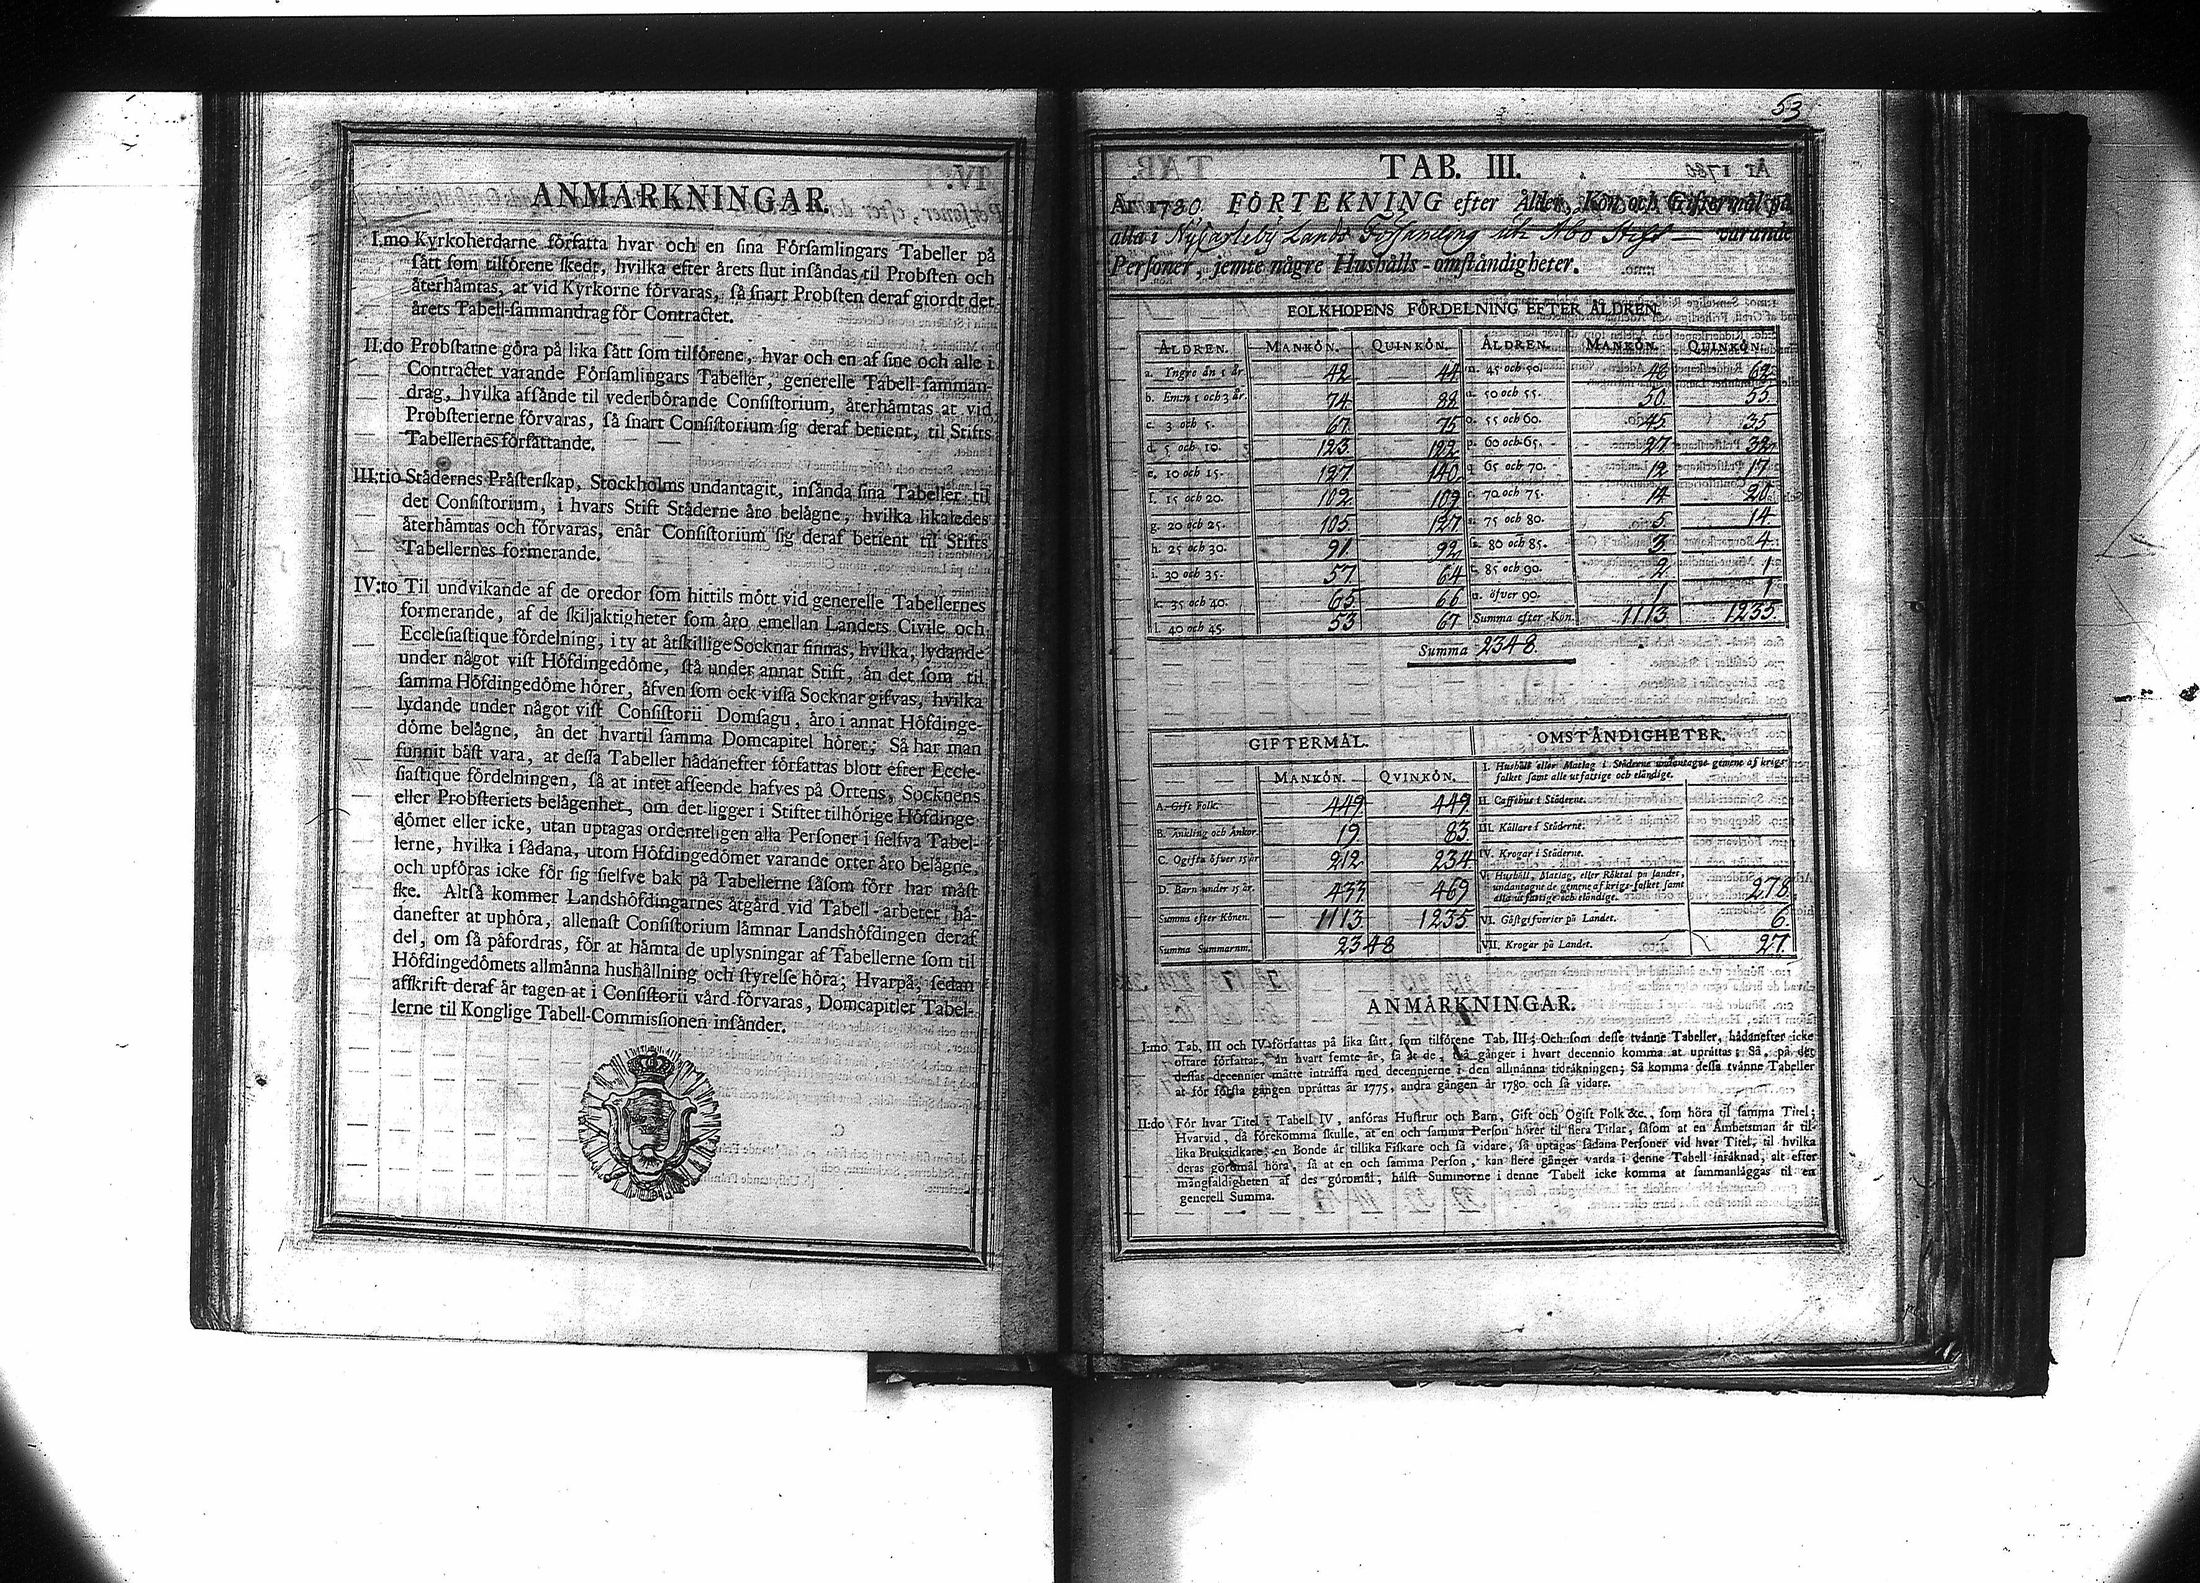 ANMÅRKNINGAR.
I:mo Kyrkoherdarne författa hvar och en sina Församlingars Tabeller på
sått som tilförene skedt, hvilka efter årets slut insåndas til Probsten och
återhåmtas, at vid Kyrkorne förvaras, så snart Probsten deraf giordt det
årets Tabell-sammandrag för Contractet.
II:do Probstarne göra på lika sått som tilförene, hvar och en af sine och alle i
Contractet varande Församlingars Tabeller, generelle Tabell-samman-
drag, hvilka afsånde til vederbörande Consistorium, återhåmtas at vid
Probsterierne förvaras, så snart Consistorium sig deraf betient, til Stifts
Tabellernes författande.
III:tio Stådernes Pråsterskap, Stockholms undantagit, insånda sina Tabeller til
det Consistorium, i hvars Stift Ståderne åro belågne, hvilka likaledes
återhåmtas och förvaras, enår Consistorium sig deraf betient til Stifts
Tabellernes formerande.
IV:to Til undvikande af de oredor som hittils mött vid generelle Tabellernes
formerande, af de skiljaktigheter som åro emellan Landets Civile och
Ecclesiastique fördelning, i ty at åtskillige Socknar finnas, hvilka, lydande
under något visst Höfdingedöme, stå under annat Stift, ån det som til
samma Höfdingedöme hörer, åfven som ock vissa Socknar gifvas, hvilka
lydande under något vist Consistorii Domsagu, åro i annat Höfdinge-
döme belågne, ån det hvartil samma Domcapitel hörer; Så har man
funnit båst vara, at dessa Tabeller hådanefter författas blott efter Eccle-
siastique fördelningen, så at intet afseende hafves på Ortens, Socknens
eller Probsteriets belågenhet, om det ligger i Stiftet tilhörige Höfdinge-
dömet eller icke, utan uptagas ordenteligen alla Personer i sielfva Tabel-
lerne, hvilka i sådana, utom Höfdingedömet varande orter åro belågne,
och upföras icke för sig sielfve bak på Tabellerne såsom förr har måst
ske. Altså kommer Landshöfdingarnes åtgård vid Tabell-arbetet, hå-
danefter at uphöra, allenast Consistorium låmnar Landshöfdingen deraf
del, om så påfordras, för at håmta de uplysningar af Tabellerne som til
Höfdingedömets allmånna hushållning och styrelse höra; Hvarpå, sedan
afskrift deraf år tagen at i Consistorii vård förvaras, Domcapitlet Tabel-
lerne til Konglige Tabell-Commissionen insånder.
53
TAB. III.
År 1780. FÖRTEKNING efter Ålder, Kön och Giftermål på
alla i NyCarleby Lands Församling uti Åbo Stift — varande
Personer, jemte någre Hushålls-omståndigheter.
FOLKHOPENS FÖRDELNING EFTER ÅLDREN.
ÅLDREN. MANKÖN. QUINKÖN. ÅLDREN. MANKÖN. QUINKÖN.
a. Yngre ån 1 år 42 44 m. 45 och 50. 48 62
b. Em:n 1 och 3 år. 74 88 n. 50 och 55. 50 55
c. 3 och 5. 67 75 o. 55 och 60. 45 35
d. 5 och 10. 123 122 p. 60 och 65. 27 32
e. 10 och 15. 127 140 q. 65 och 70. 12 17
f. 15 och 20. 102 109 r. 70 och 75. 14 20
g. 20 och 25. 105 127 s. 75 och 80. 5 14
h. 25 och 30. 91 92 80 och 85. 3 4
i. 30 och 35. 57 64 t. 85 och 90. 2 1
k. 35 och 40. 65 66 u. öfver 90. 1 1
l. 40 och 45. 53 67 Summa efter Kön. 1113 1235
Summa 2348
GIFTERMÅL. OMSTÅNDIGHETER.
MANKÖN. QVINKÖN.
I. Hushåll eller Matlag i Ståderne undantagne gemene af krigs-
folket samt alle utfattige och elåndige.
A. Gift Folk. 449 449
II. Caffehus i Ståderne.
B. Ånkling och Ånkor. 19 83
III. Kållare i Ståderne.
C. Ogifta öfver 15 år 212 234
IV. Krogar i Ståderne.
D. Barn under 15 år. 433 469
V. Hushåll, Matlag, eller Röktal på landet,
undantagne de gemene af krigs-folket samt
alla utfattige och elåndige. 278
Summa efter Könen. 1113 1235
VI. Gåstgifverier på Landet. 6
Summa Summarum. 2348
VII. Krogar på Landet. 27
ANMÅRKNINGAR.
I:mo Tab. III och IV författas på lika sått, som tilförene Tab. III; Och som desse tvånne Tabeller, hådanefter icke
oftare författas, ån hvart femte år, så at de, två gånger i hvart decennio komma at upråttas; Så, på det
dessas decennier måtte intråffa med decennierne i den allmånna tidråkningen; Så komma dessa tvånne Tabeller
at för första gången upråttas år 1775, andra gången år 1780 och så vidare.
II:do För hvar Titel i Tabell IV, anföras Hustrur och Barn, Gift och Ogift Folk &c., som höra til samma Titel;
Hvarvid, då förekomma skulle, at en och samma Person hörer til flera Titlar, såsom at en Åmbetsman år til-
lika Bruksidkare; en Bonde år tillika Fiskare och så vidare, så uptagas sådana Personer vid hvar Titel, til hvilka
deras göromål höra, så at en och samma Person, kan flere gånger varda i denne Tabell inråknad, alt efter
mångfaldigheten af des göromål, hålst Summorne i denne Tabell icke komma at sammanlåggas til en
generell Summa.